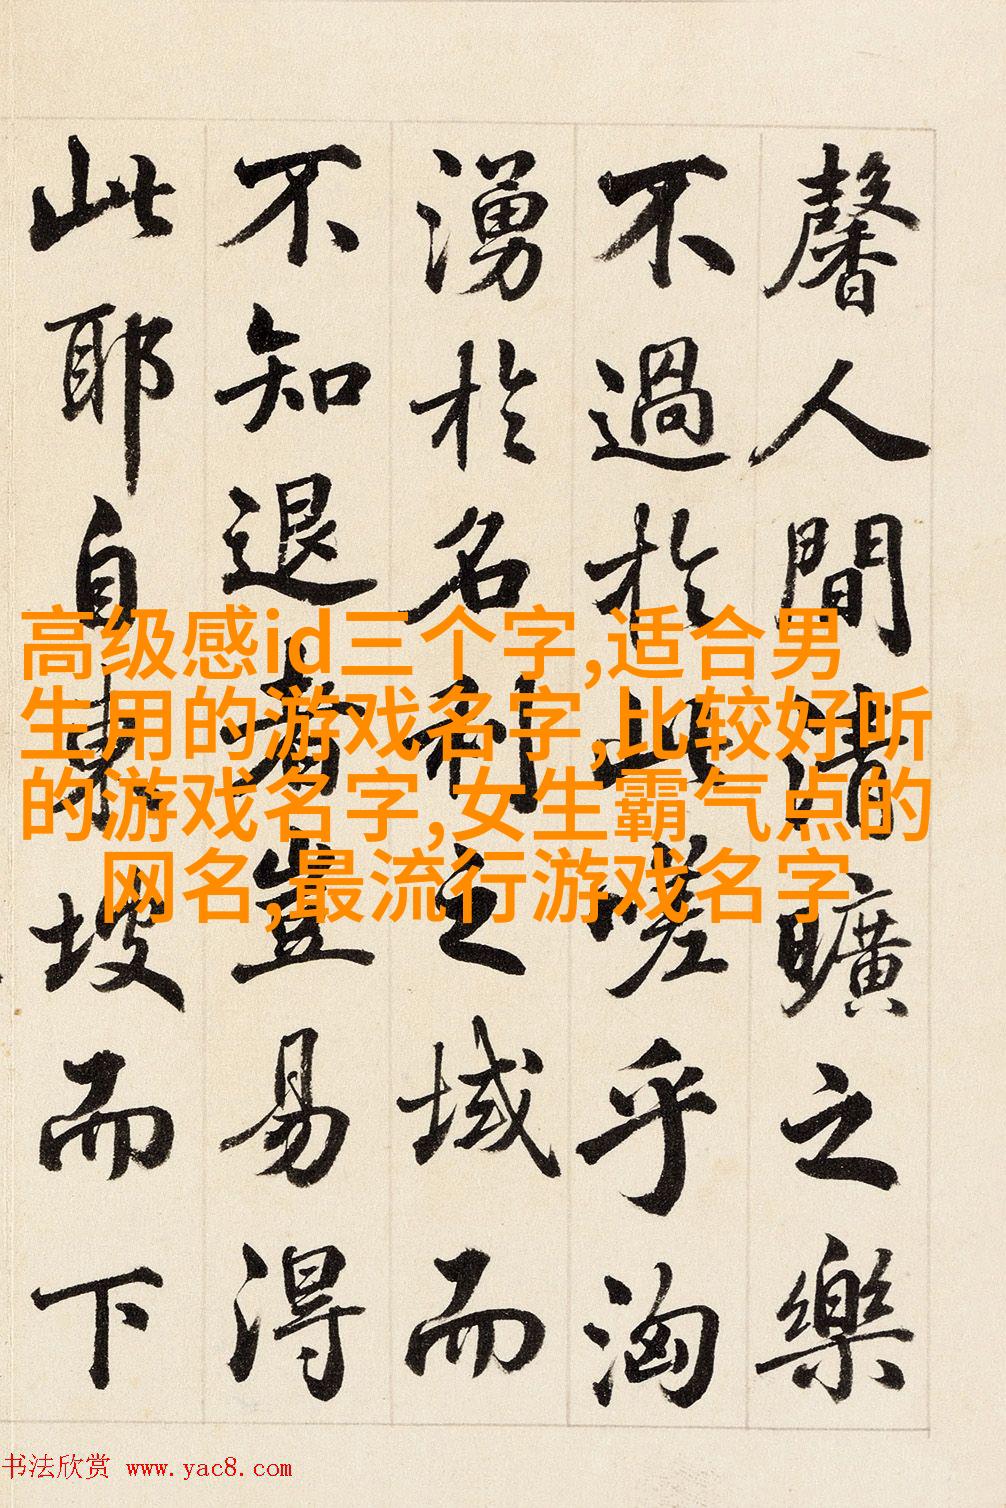 馨人間清曠之樂
不過於此嗟乎洶
湧於名利之域而
不知退者豈易得
此耶自東坡而下
高级感id三个字,适合男
生用的游戏名字,比较好听
的游戏名字,女生霸气点的
网名,最流行游戏名字
书法欣赏 www.yac8.com